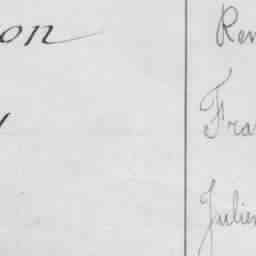 on
Ren
Fra
Julien